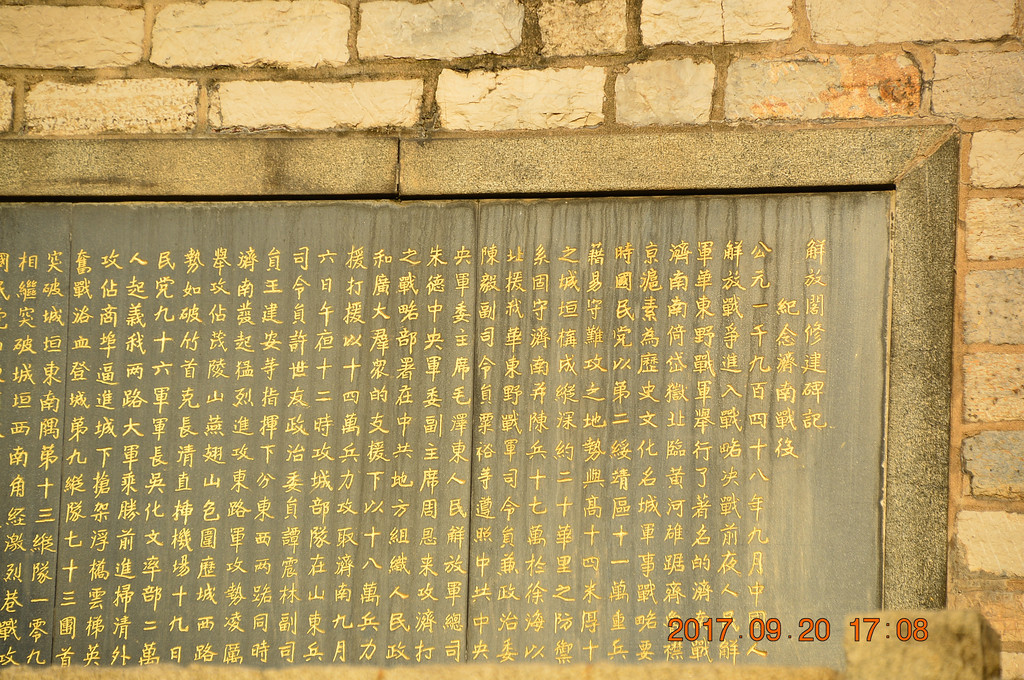 解放閣修建碑記
紀念濟南戰役
公元一千九百四十八年九月中國人
解放戰爭進入戰略决戰前夜人民解
軍華東野戰軍舉行了著名的濟南戰
濟南南倚岱嶽北臨黃河雄踞齊魯襟
京滬素為歷史文化名城軍事戰略要
時國民党以第二綏靖區十一萬重兵
藉易守難攻之地勢與高十四米厚十
之城垣構成縱深約二十華里之防禦
系固守濟南并陳兵十七萬於徐海以
北援我華東野戰軍司令員兼政治委
陳毅副司令員粟裕等遵照中共中央
央軍委主席毛澤東人民解放軍總司
朱德中央軍委副主席周恩来攻濟打
之戰略部署在中共地方組織人民政
和廣大群衆的支援下以十八萬兵力
援打援以十四萬兵力攻取濟南九月
六日午夜十二時攻城部隊在山東兵
司令員許世友政治委員譚震林副司
員王建安等指揮下分東西两路同時
濟南發起猛烈進攻東路軍攻勢凌厲
舉攻佔茂陵山燕翅山包圍歷城西路
勢如破竹首克長清直插機場十九日
民党九十六軍軍長吳化文率部二萬
人起義我两路大軍乘勝前進掃清外
攻佔商埠逼進城下搶架浮橋雲梯英
奮戰浴血登城第九縱隊七十三團首
突破城垣東南隅第十三縱隊一零九
相繼突破城垣西南角經激烈巷戰攻
國民党
2017.09.20 17:08